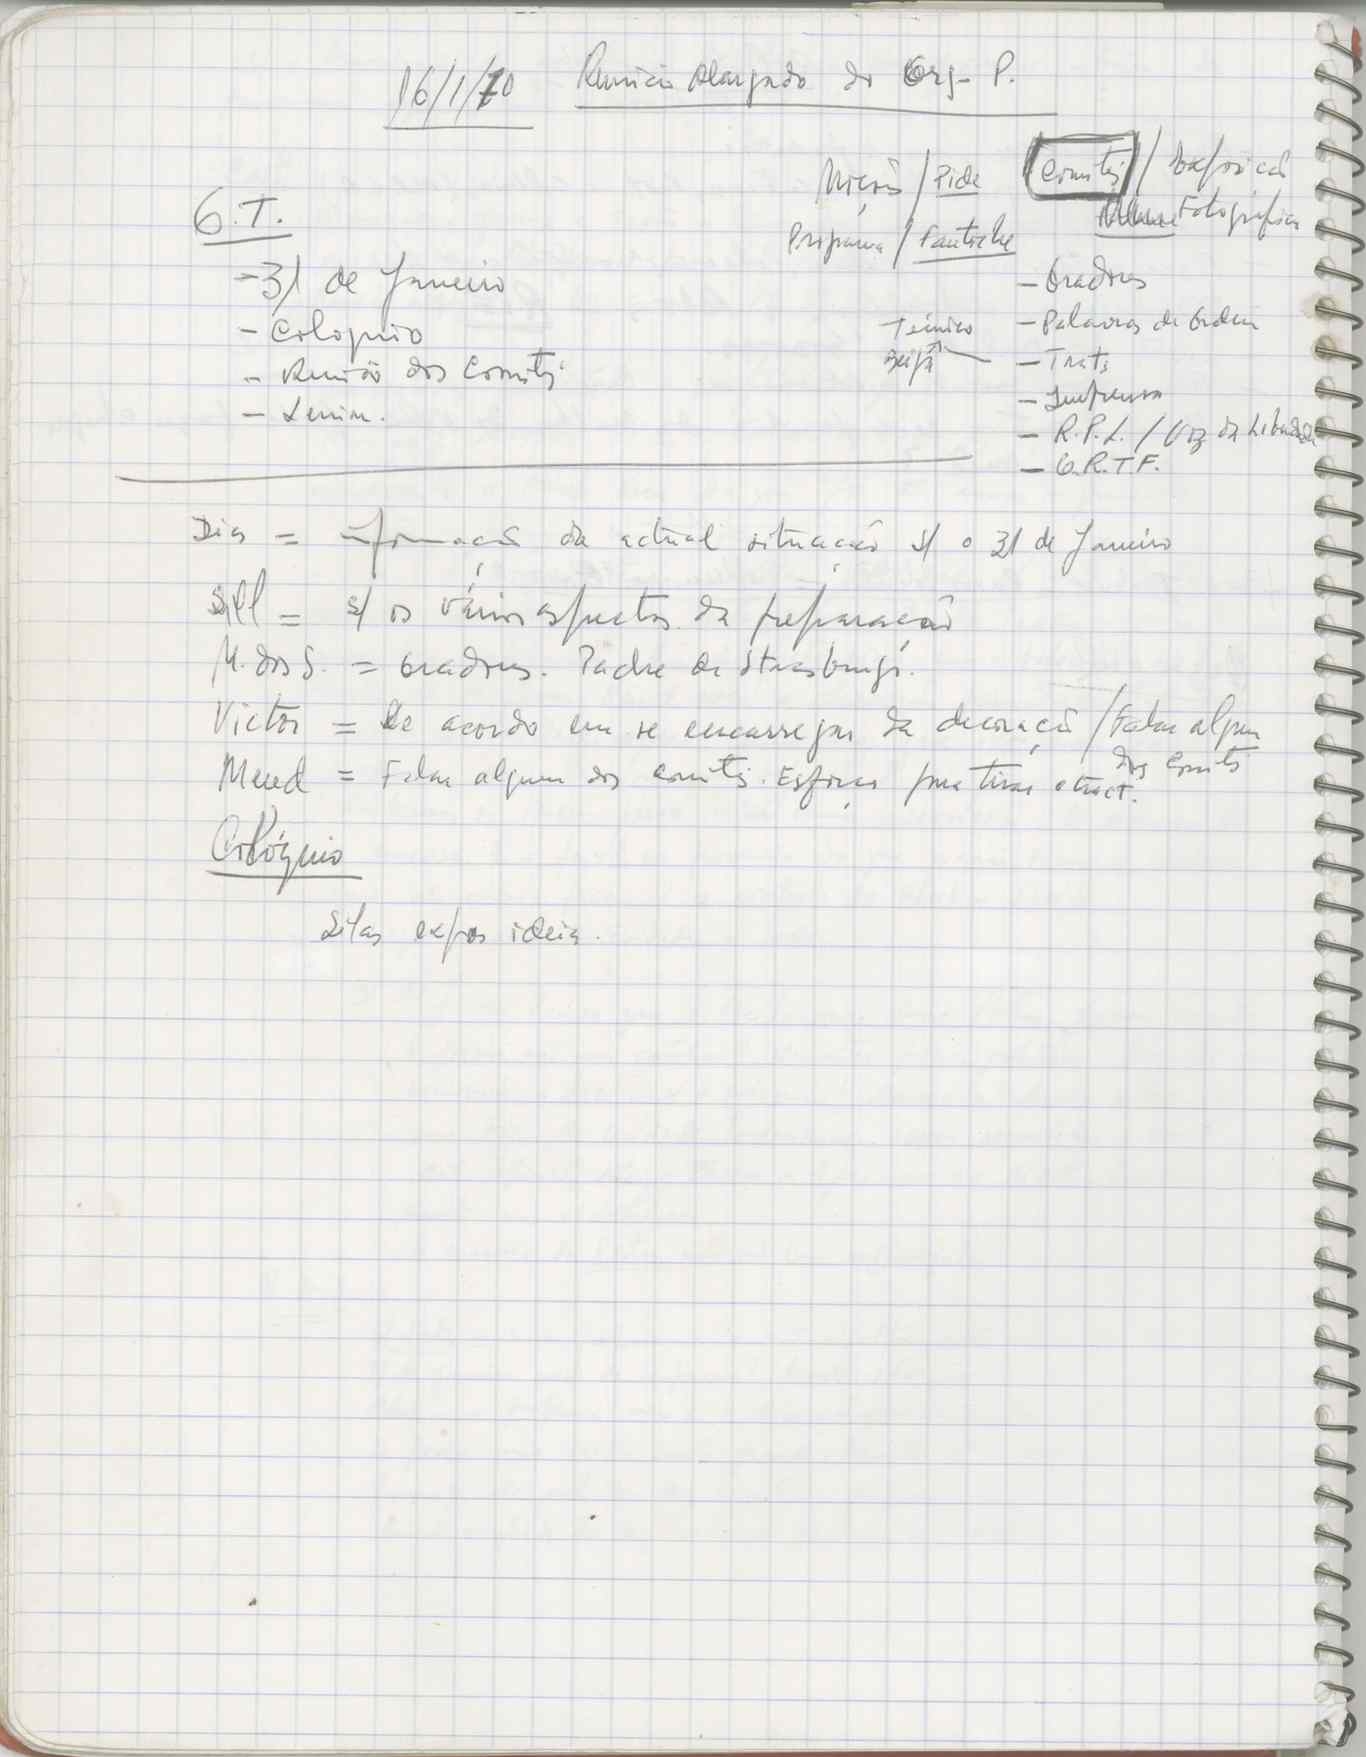 16/1/70 Reunião Alargada do Org. P.
Moções / Pide
Comités / Exposição
Fotográfica
Programa / Fantoche
O.T.
- 31 de Janeiro
- Coloquio
- Reunião dos Comités
- Lenine.
- Oradores
- Palavras de Ordem
- Tracts
- Imprensa
- R.P.L. / Voz da Liberdade
- O.R.T.F.
Técnico
Dias = informação da actual situação s/ o 31 de Janeiro
= s/ os vários aspectos da preparação
M. dos S. = Oradores. Padre de Strasburgo.
Victor = De acordo em se encarregar da decoração / Falar alguem
dos Comités
Mend = Falar alguem dos comités. Esforço para tirar o tract.
Colóquio
Silas expos ideia.